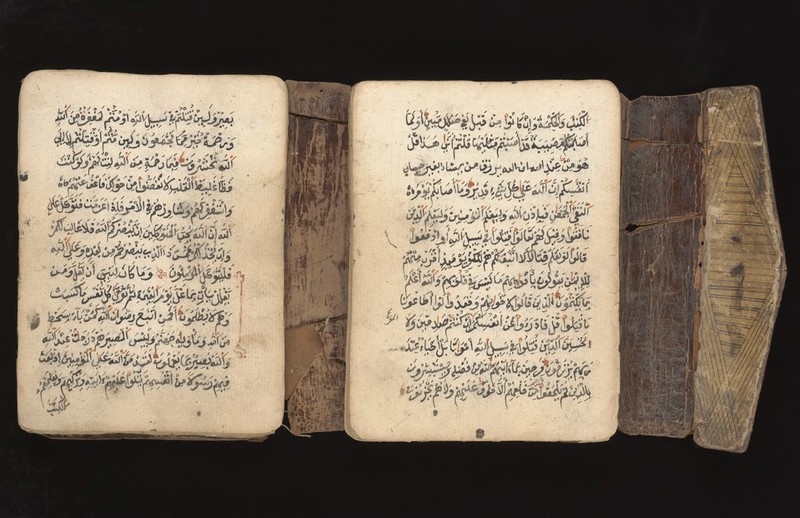 بصير ولئن قتلتم في سبيل الله أو متم لمغفرة من الله
ورحمة خير مما يجمعون ولئن متم أو قتلتم لإلى
الله تحشرون فبما رحمة من الله لنت لهم ولو كنت
فظا غليظ القلب لانفضوا من حولك فاعف عنهم
واستغفر لهم وشاورهم في الأمر فإذا عزمت فتوكل على
الله إن الله يحب المتوكلين إن ينصركم الله فلا غالب لكم
وإن يخذلكم فمن ذا الذي ينصركم من بعده وعلى الله
فليتوكل المؤمنون وما كان لنبي أن يغل ومن
يغلل يأت بما غل يوم القيمة ثم توفى كل نفس ما كسبت
وهم لا يظلمون أفمن اتبع رضوان الله كمن باء بسخط
من الله ومأويه جهنم وبئس المصير هم درجت عند الله
والله بصير بما يعملون لقد من الله على المؤمنين إذ بعث
فيهم رسولا من أنفسهم يتلوا عليهم ءايته ويزكيهم ويعلمهم
الكتب
الكتب والحكمة وإن كانوا من قبل لفي ضلل مبين أولما
أصبتكم مصيبة قد أصبتم مثليها قلتم أنى هذا قل
هو من عند الله ان الله يرزق من يشاء بغير حساب
أنفسكم إن الله على كل شيء قدير وما أصابكم يوم
التقى الجمعن فبإذن الله وليعلم المؤمنين وليعلم الذين
نافقوا وقيل لهم تعالوا قتلوا في سبيل الله أو ادفعوا
قالوا لو نعلم قتالا لاتبعنكم هم للكفر يومئذ أقرب منهم
للإيمن يقولون بأفوههم ما ليس في قلوبهم والله أعلم
بما يكتمون الذين قالوا لإخونهم وقعدوا لو أطاعونا
ما قتلوا قل فادرءوا عن أنفسكم إن كنتم صدقين ولا
الموت
تحسبن الذين قتلوا في سبيل الله أموتا بل أحياء عند
ربهم يرزقون فرحين بما ءاتيهم الله من فضله ويستبشرون
بالذين لم يلحقوا بهم من خلفهم ألا خوف عليهم ولا هم يحزنون